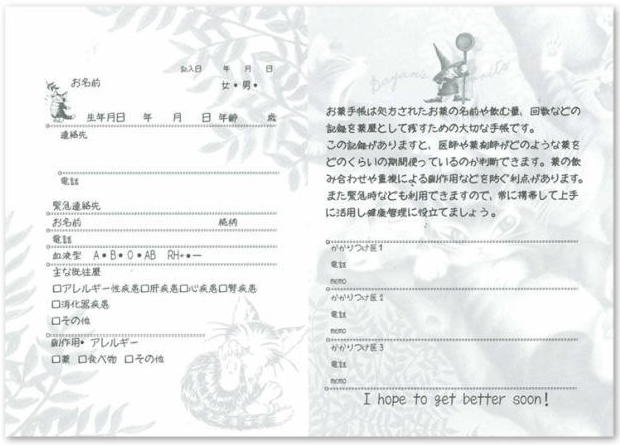 記入日 年 月 日
お名前 女・男・
生年月日 年 月 日 年齢 歳
連絡先
電話
緊急連絡先
お名前 続柄
電話
血液型 A・B・O・AB RH+・−
主な既往歴
□アレルギー性疾患□肝疾患□心疾患□腎疾患
□消化器疾患
□その他
副作用・アレルギー
□薬 □食べ物 □その他
Dayan's
お薬手帳は処方されたお薬の名前や飲む量、回数などの
記録を薬歴として残すための大切な手帳です。
この記録がありますと、医師や薬剤師がどのような薬を
どのくらいの期間使っているのか判断できます。薬の飲
み合わせや重複による副作用などを防ぐ利点があります。
また緊急時なども利用できますので、常に携帯して上手
に活用し健康管理に役立てましょう。
かかりつけ医1
電話
memo
かかりつけ医2
電話
memo
かかりつけ医3
電話
memo
I hope to get better soon!